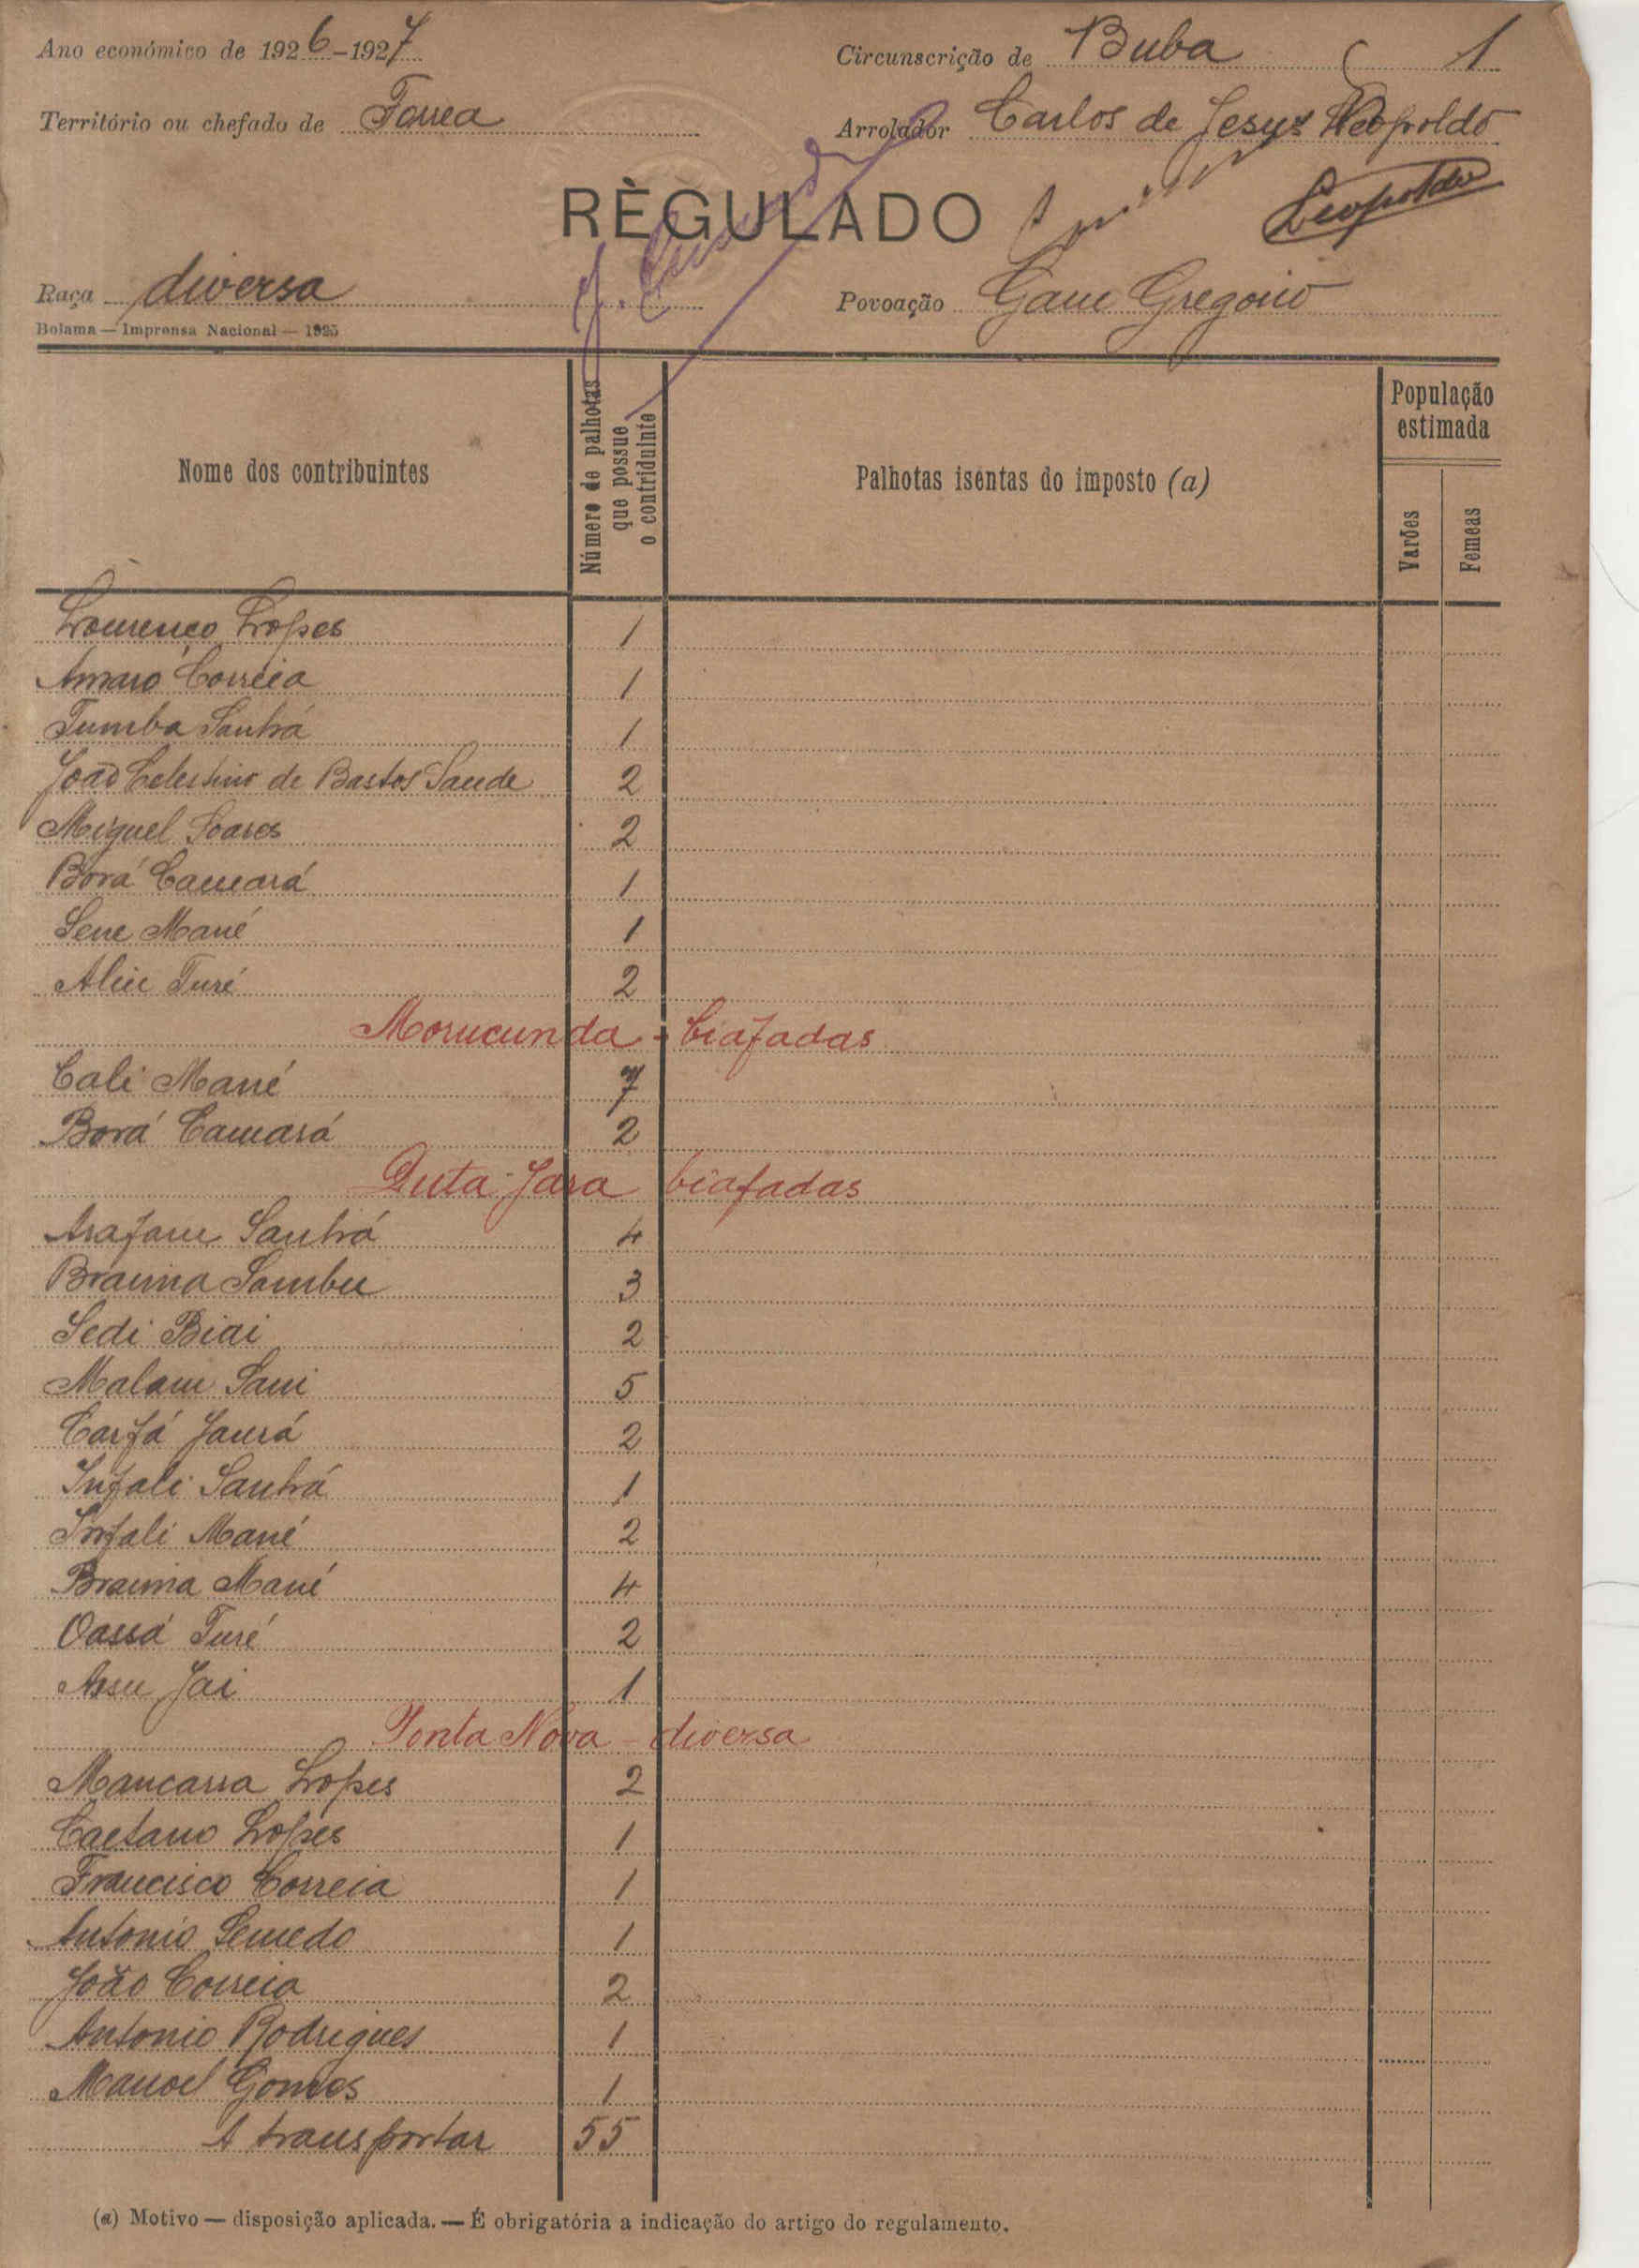 Ano económico de 1926-1927
Circunscrição de Buba 1
Território ou chefado de Forrea
Arrolador Carlos de Jesus Leopoldo
REGULADO
Leopoldo
Raça diversa
Povoação Gam Gregorio
Bolama — Imprensa Nacional — 1925
Nome dos contribuintes
Número de palhotas que possue o contriduinte
Palhotas isentas do imposto (a)
População estimada
Varões
Femeas
Lourenço Lopes 1
Amaro Correia 1
Tumba Sanhá 1
João Celestino de Bastos Sande 2
Miguel Soares 2
Borá Camará 1
Sene Mané 1
Aliu Turé 2
Morucunda - biafadas
Cali Mané 7
Borá Camará 2
Duta-Jara biafadas
Arafam Sanhá 4
Braima Sambu 3
Sedi Biai 2
Malam Sani 5
Carfá Jaurá 2
Infali Sanhá 1
Infali Mané 2
Braima Mané 4
Oassá Turé 2
Assu Jai 1
Ponta Nova - diversa
Mancarra Lopes 2
Caetano Lopes 1
Francisco Correia 1
Antonio Semedo 1
João Correia 2
Antonio Rodrigues 1
Manoel Gomes 1
A transportar 55
(a) Motivo — disposição aplicada. — É obrigatória a indicação do artigo do regulamento.